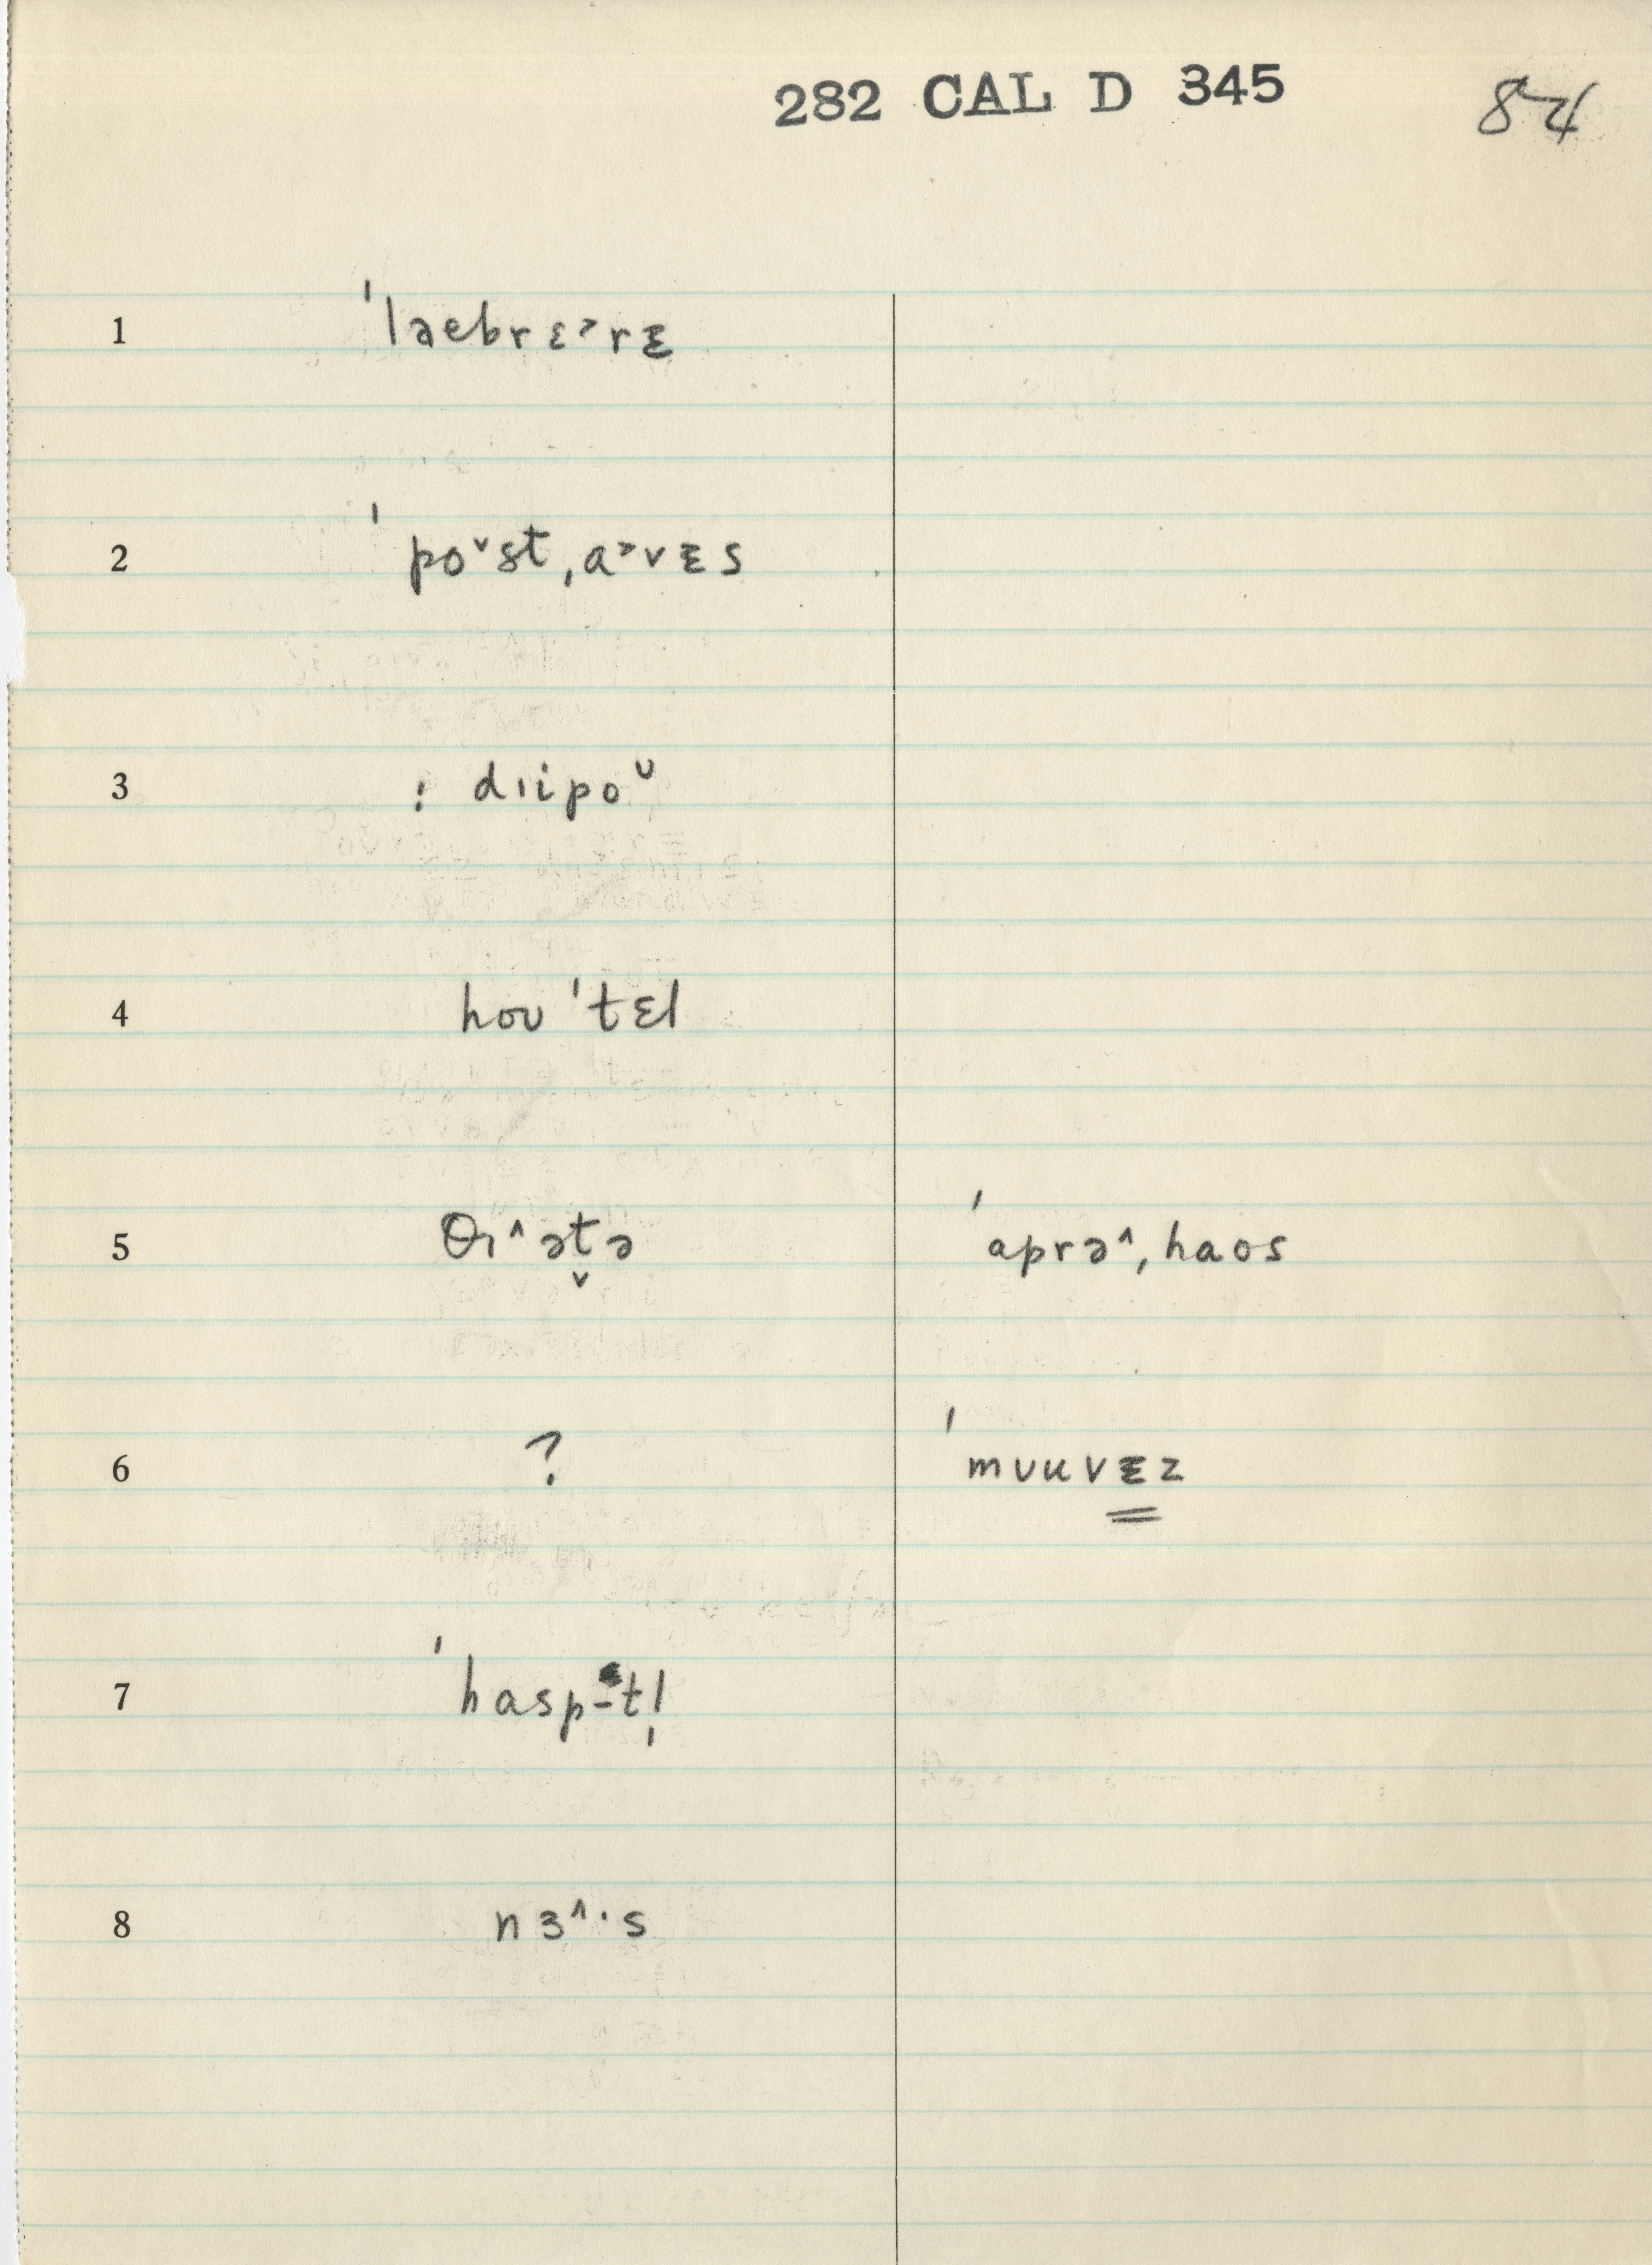 282 CAL D 345
84
1 ˈlaebrɛ˃rᵻ
2 ˈpo˅st,a˃vᵻs
3 : dɪipoᶷ
4 hoʊˈtɛl
5 θɪ˄ət̬ə ˈaprə˄,haos
6 ? ˈmʊuvᵻz
7 ˈhaspɨtl̩
8 nɜ˄·s